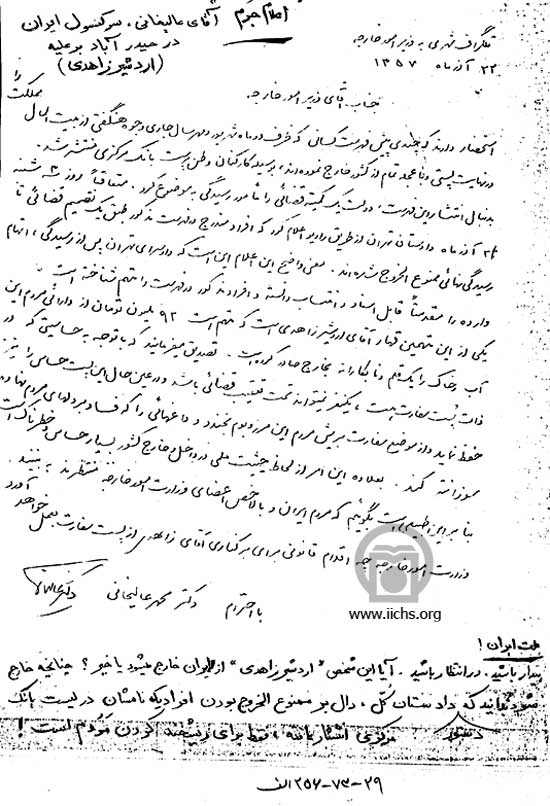 اعلام جرم آقای عالیخانی، سرکنسول ایران
در حیدرآباد بر علیه
(اردشیر زاهدی)
تلگراف شهری به وزیر امور خارجه
۲۲ آذرماه ۱۳۵۷
جناب آقای وزیر امور خارجه.
استحضار دارند که چندی پیش فهرست کسانی که ظرف دو ماه شهریور و مهر سال جاری وجوه هنگفتی از بیت المال مملکت را
در نهایت پستی و با عجله تمام از کشور خارج نموده‌اند، بوسیله کارکنان وطن پرست بانک مرکزی منتشر شد.
بدنبال انتشار این فهرست، دولت یک کمیته قضائی را مأمور رسیدگی به موضوع کرد. متعاقباً روز ۵ شنبه
آذرماه دادستان تهران از طریق رادیو اعلام کرد که افراد مندرج در فهرست مذکور طبق یک تصمیم قضائی تا
رسیدگی نهائی ممنوع الخروج شده‌اند. معنی واضح این اعلام این است که دادسرای تهران پس از رسیدگی، اتهام
وارده را مقدمتاً قابل اسناد و انتساب دانسته و افراد مذکور در فهرست را متهم شناخته است.
یکی از این متهمین تیمسار آقای اردشیر زاهدی است که متهم است ۹۲ ملیون تومان از دارائی مردم این
آب و خاک را یک قلم و نابکارانه بخارج صادر کرده است. تصدیق میفرمائید که با توجه به حساسیتی که در
ذات پست سفارت هست، یکنفر نمیتواند تحت تعقیب قضائی باشد و در عین حال این پست حساس را نیز
حفظ نماید و از موضع سفارت بریش مردم این مرز و بوم بخندد و داغهائی را که فساد بر دلهای مردم نهاده
سوزانتر کند. بعلاوه این امر از لحاظ حیثیت ملی در داخل و خارج کشور بسیار حساس و خطرناک است
بنابراین طبیعی است بگوئیم که مردم ایران و بالاخص اعضای وزارت امور خارجه منتظرند ببینند
وزارت امور خارجه چه اقدام قانونی برای برکناری آقای زاهدی از پست سفارت بعمل خواهد آورد
با احترام دکتر محمد عالیخانی
www.iichs.org
ملت ایران!
بیدار باشید. در انتظار باشید. آیا این شخص "اردشیر زاهدی" از ایران خارج میشود یا خیر؟ چنانچه خارج
شود بدانید که دادستان کل، دال بر ممنوع الخروج بودن افرادیکه نامشان در لیست بانک
مرکزی انتشار یافته، فقط برای ریشخند کردن مردم است!
۲۹-۷۳-۲۵۶ الف